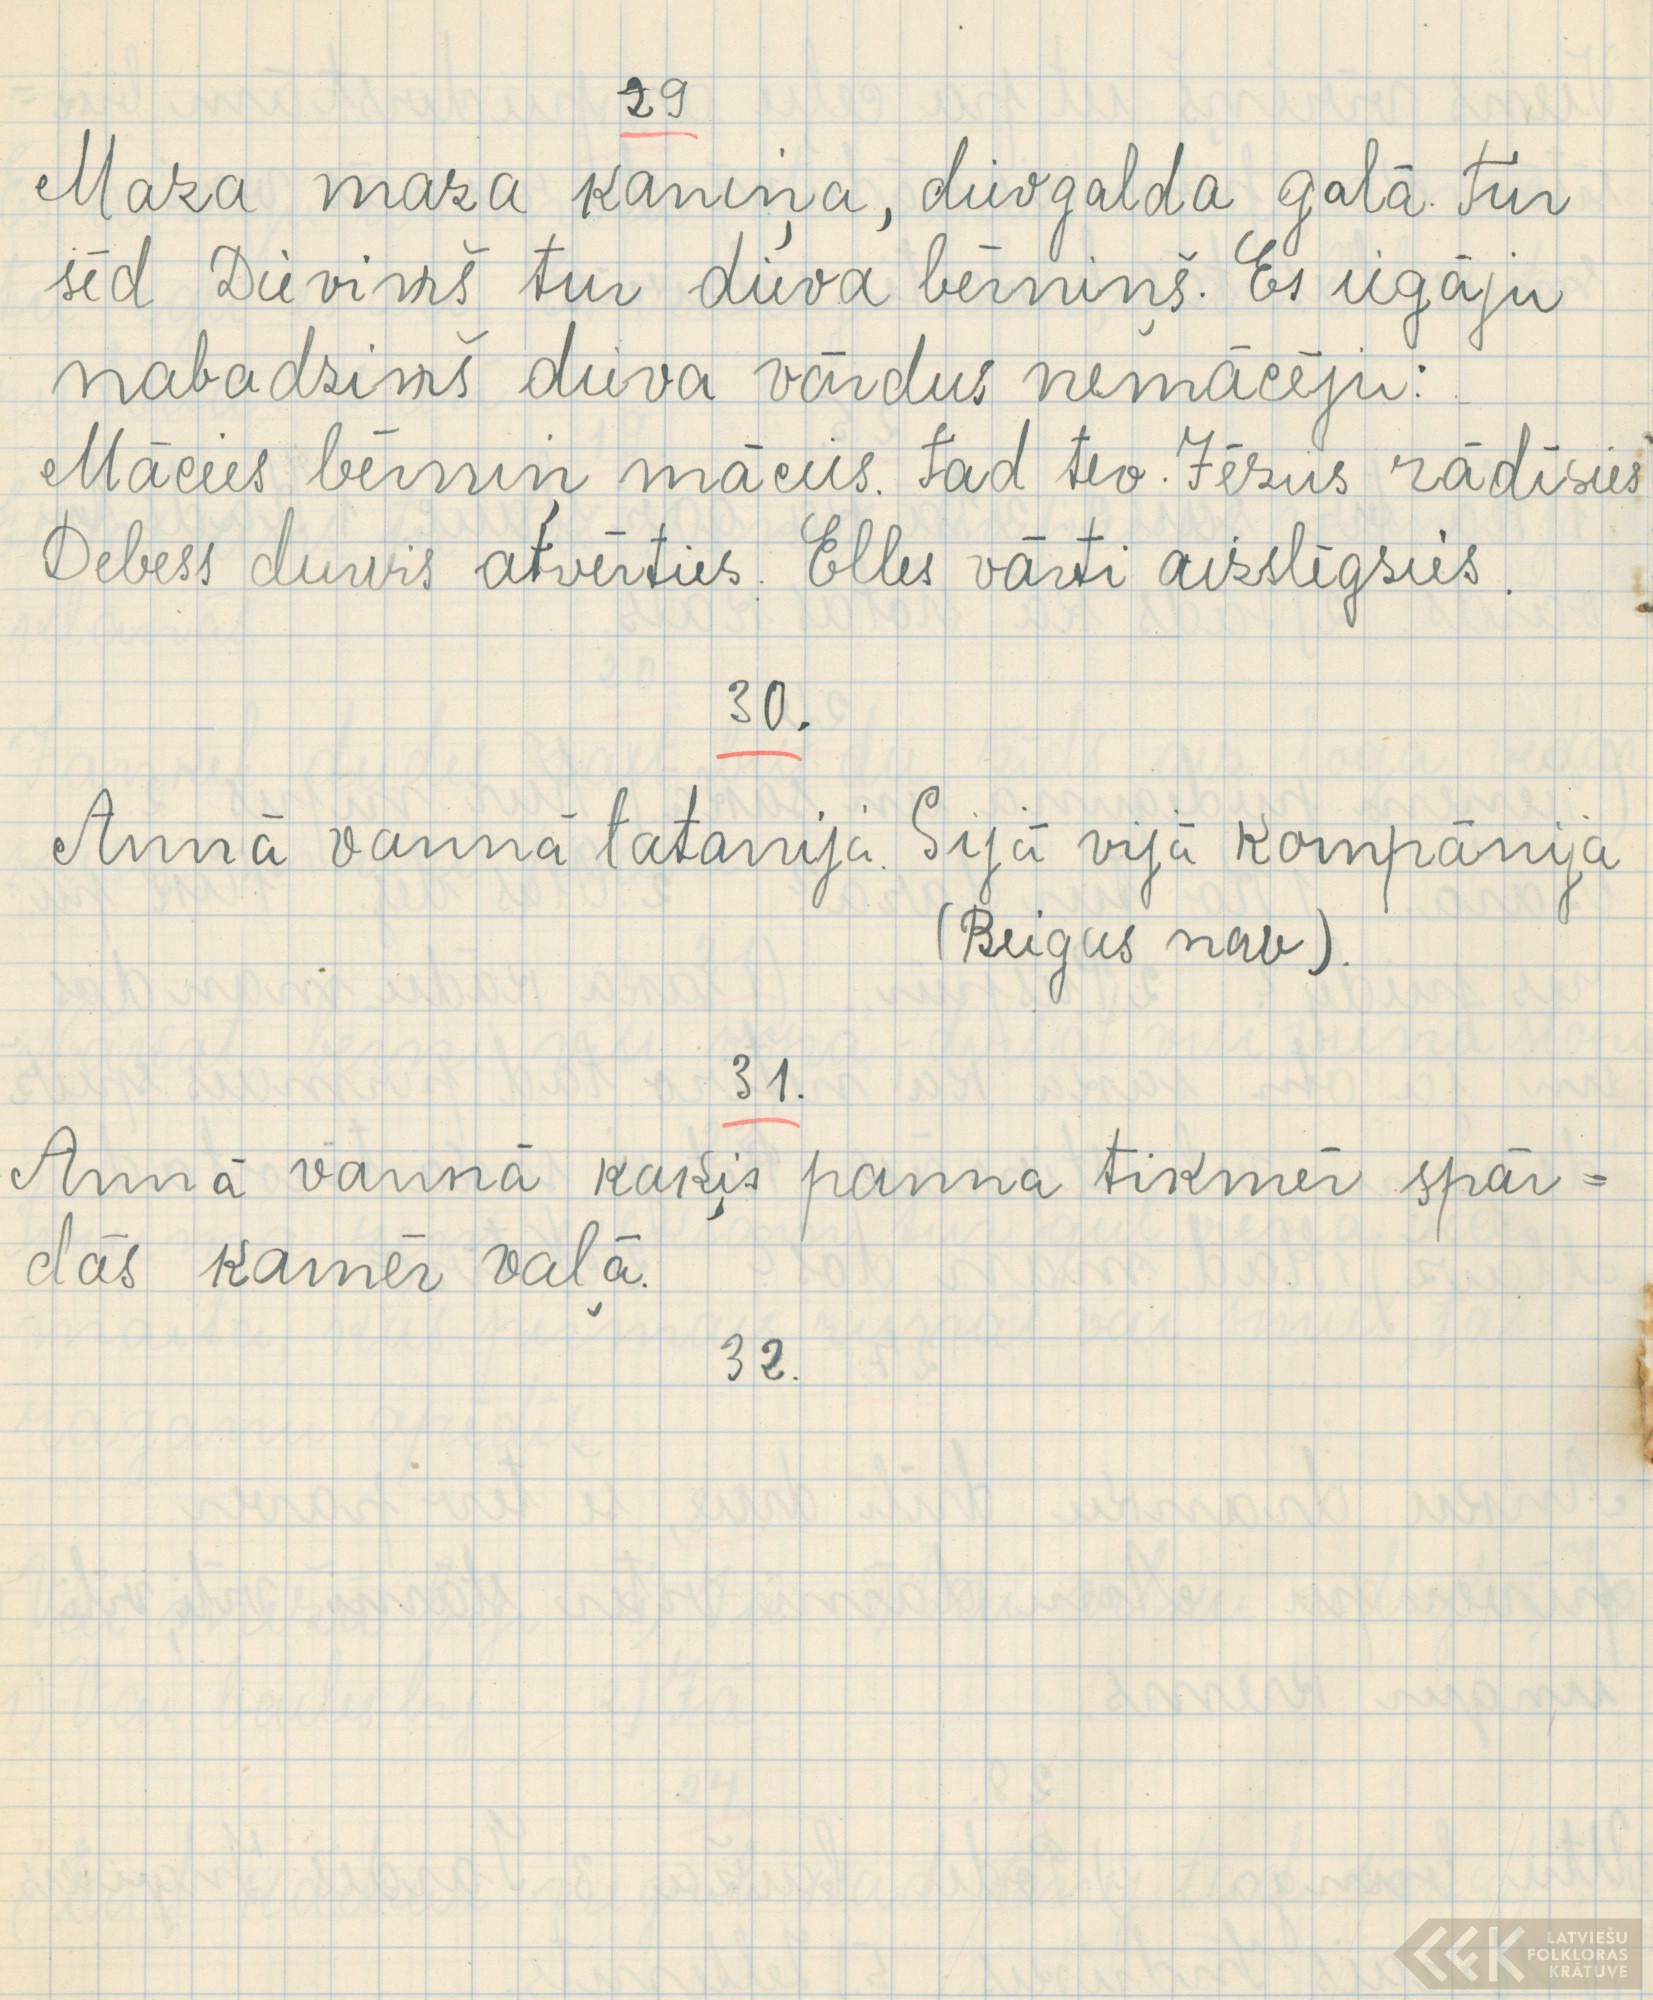 29
Maza maza kaniņa, dievgalda galā. Tur
sēd Dieviņš tur dieva bērniņš. Es iegāju
nabadziņš dieva vārdus nemācēju:
Mācies bērniņ mācies. Tad tev. Jēzus rādīsies
Debess durvis atvērties. Elles vārti aizslēgsies.
30.
Annā vannā tatanijā. Sijā vijā kompānijā
(Beigas nav).
31.
Annā vannā kaķis panna tikmēr spār=
dās kamēr vaļā.
32.
LATVIEŠU
FOLKLORAS
KRĀTUVE